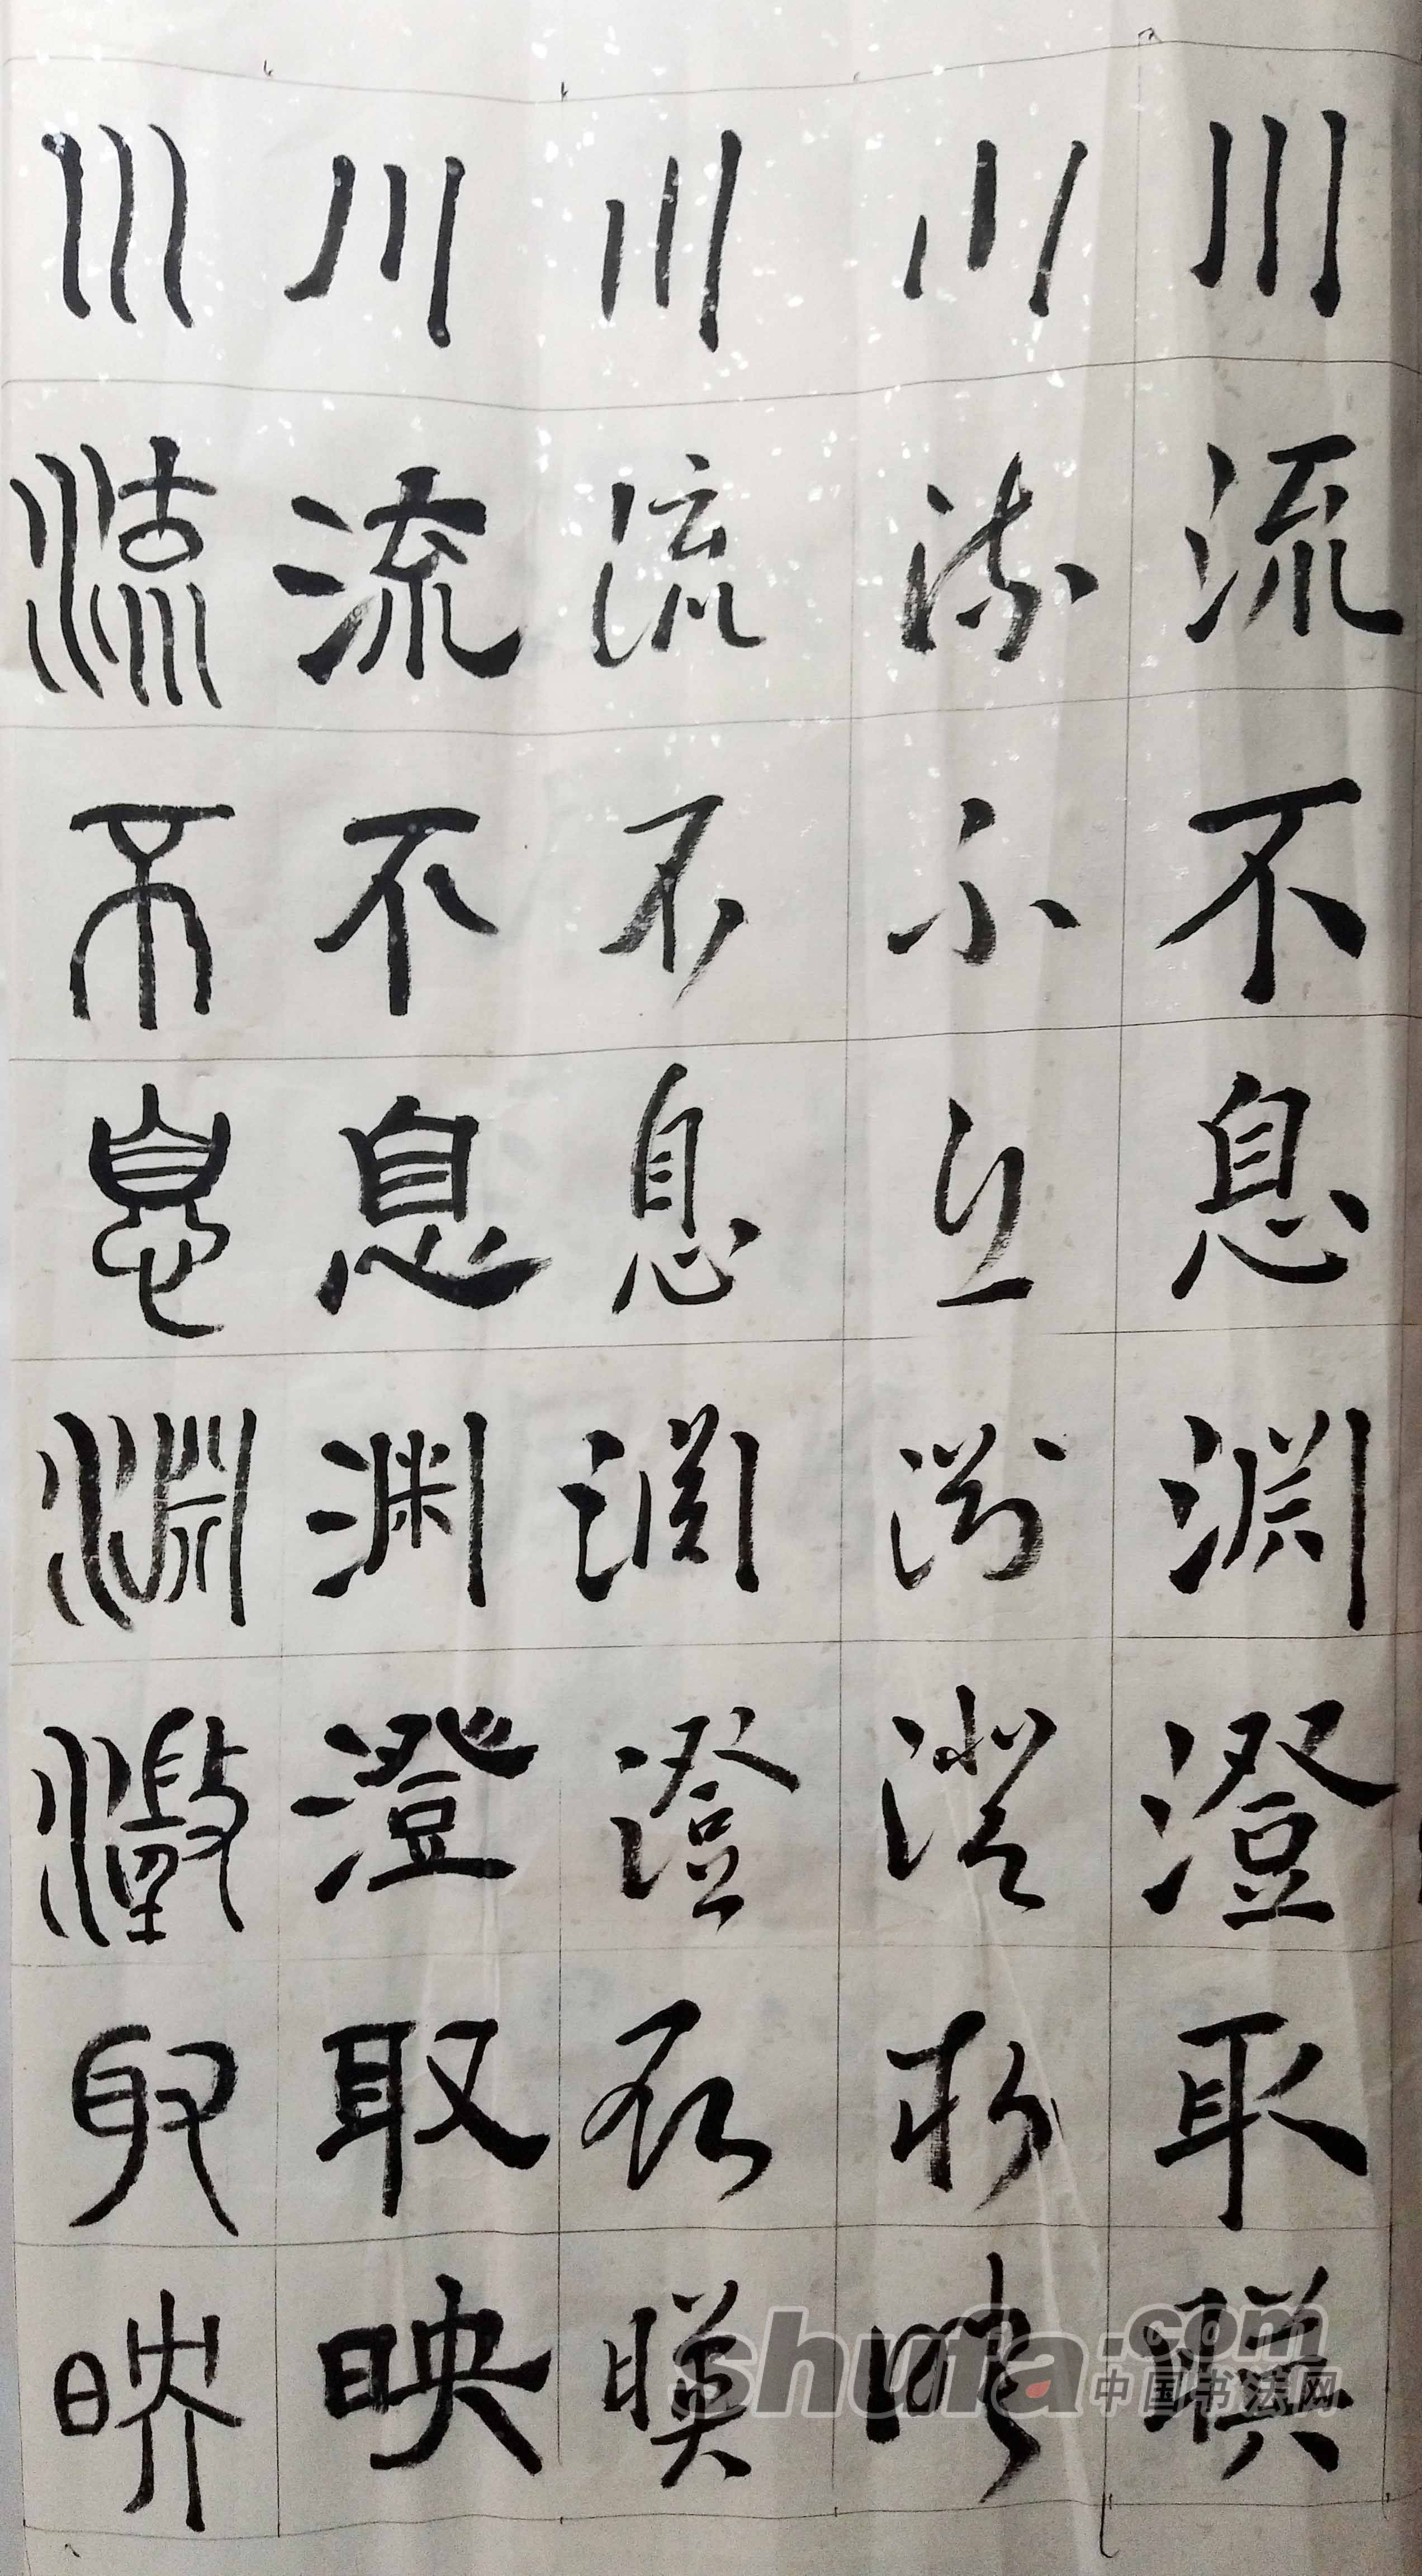 川流不息渊澄取暎
川流不息渊澄取映
川流不息渊澄取暎
川流不息渊澄取映
川流不息渊澄取映
shufa.com
中国书法网